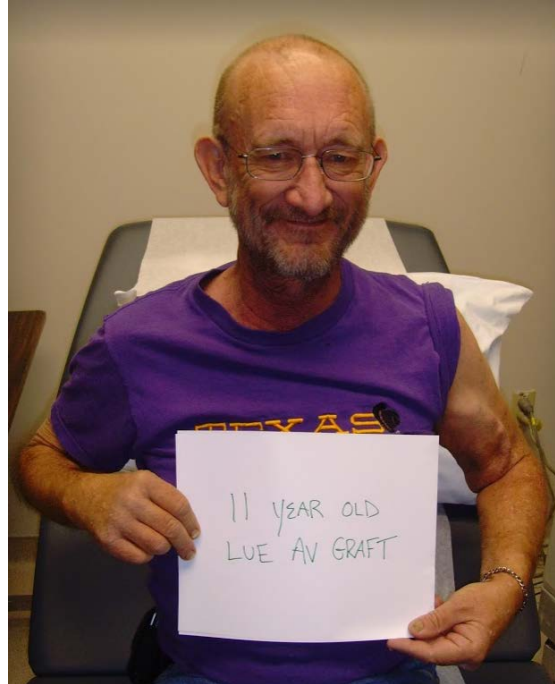 TEXAS
11 YEAR OLD
LUE AV GRAFT